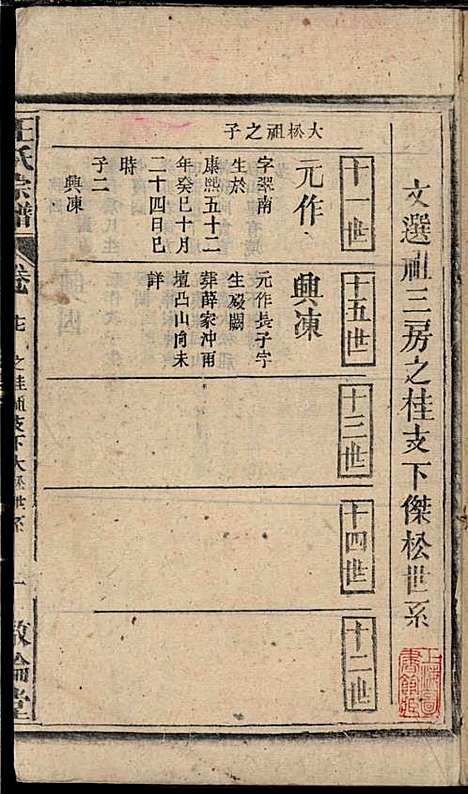 文選祖三房之桂支下傑松世系
十一世
十五世
十三世
十四世
十二世
大松祖之子
元作
字翠南
生於
康熙五十二
年癸巳十月
二十四日巳
時
子二
興凍
興凍
元作長子字
生殁闕
葬薛家冲雨
壇凸山向未
詳
王氏宗譜
卷
之桂祖支下大松世系
一
敦倫堂